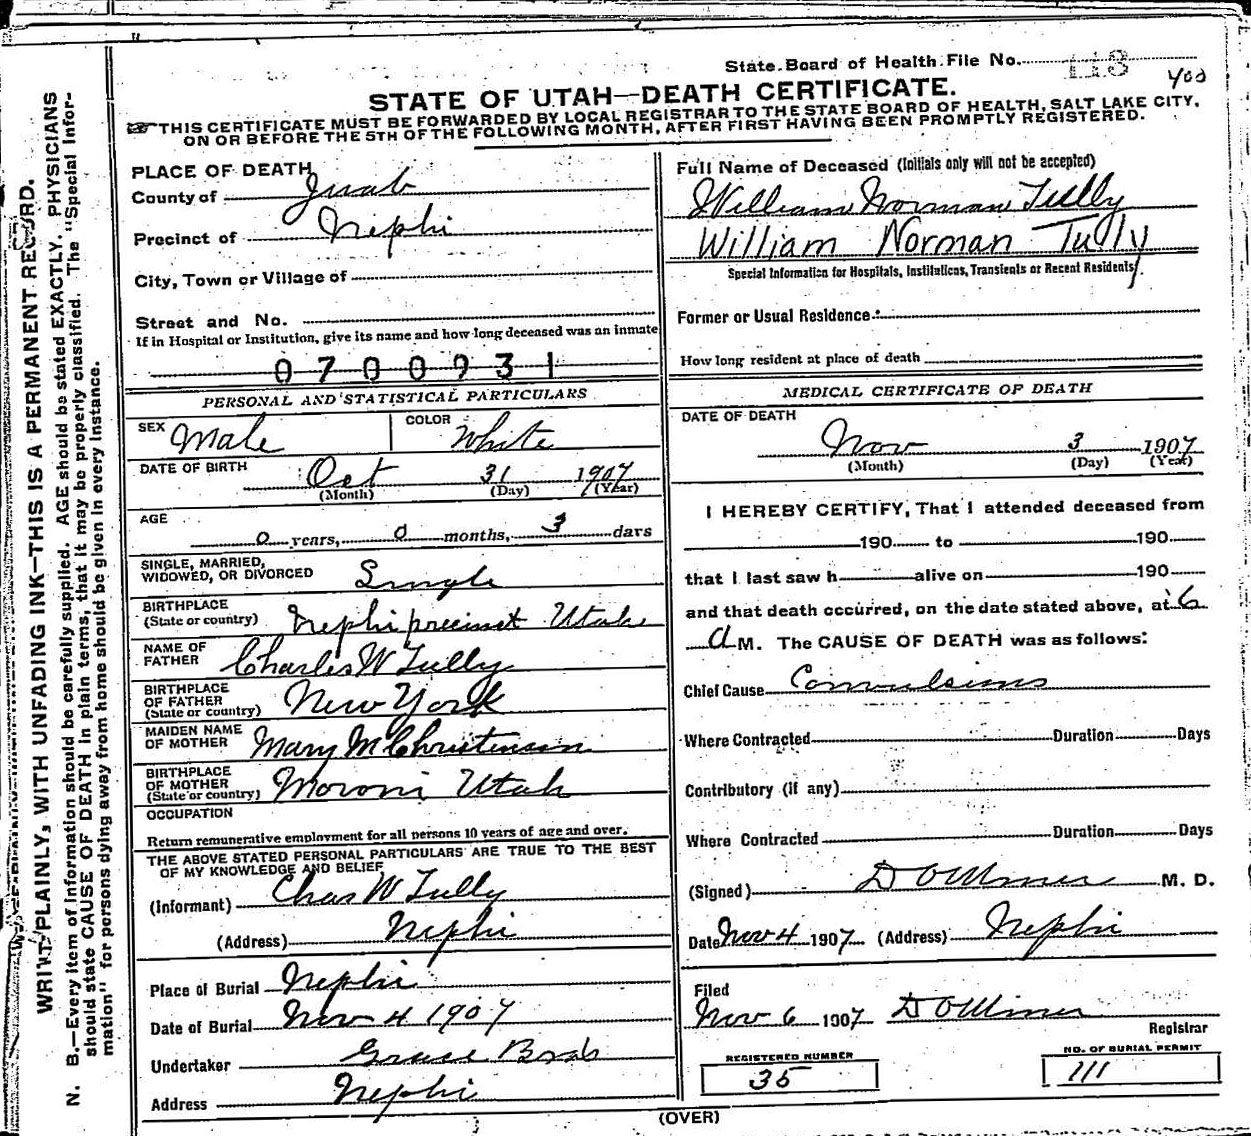 State Board of Health File No. 113
400
STATE OF UTAH—DEATH CERTIFICATE.
THIS CERTIFICATE MUST BE FORWARDED BY LOCAL REGISTRAR TO THE STATE BOARD OF HEALTH, SALT LAKE CITY,
ON OR BEFORE THE 5TH OF THE FOLLOWING MONTH, AFTER FIRST HAVING BEEN PROMPTLY REGISTERED.
WRITE PLAINLY, WITH UNFADING INK—THIS IS A PERMANENT RECORD.
N. B.—Every item of information should be carefully supplied. AGE should be stated EXACTLY. PHYSICIANS
should state CAUSE OF DEATH in plain terms, that it may be properly classified. The "Special Infor-
mation" for persons dying away from home should be given in every instance.
PLACE OF DEATH
County of Juab
Precinct of Nephi
City, Town or Village of
Street and No.
If in Hospital or Institution, give its name and how long deceased was an inmate
0700931
PERSONAL AND STATISTICAL PARTICULARS
SEX Male COLOR White
DATE OF BIRTH Oct 31 1907
(Month) (Day) (Year)
AGE
0 years, 0 months, 3 days
SINGLE, MARRIED,
WIDOWED, OR DIVORCED Single
BIRTHPLACE
(State or country) Nephi precinct Utah
NAME OF
FATHER Charles W Tully
BIRTHPLACE
OF FATHER
(State or country) New York
MAIDEN NAME
OF MOTHER Mary M Christensen
BIRTHPLACE
OF MOTHER
(State or country) Moroni Utah
OCCUPATION
Return remunerative employment for all persons 10 years of age and over.
THE ABOVE STATED PERSONAL PARTICULARS ARE TRUE TO THE BEST
OF MY KNOWLEDGE AND BELIEF
(Informant) Chas W Tully
(Address) Nephi
Place of Burial Nephi
Date of Burial Nov 4 1907
Undertaker Bros
Address Nephi
Full Name of Deceased (Initials only will not be accepted)
William Norman Tully
William Norman Tully
Special Information for Hospitals, Institutions, Transients or Recent Residents
Former or Usual Residence
How long resident at place of death
MEDICAL CERTIFICATE OF DEATH
DATE OF DEATH
Nov 3 1907
(Month) (Day) (Year)
I HEREBY CERTIFY, That I attended deceased from
190 to 190
that I last saw h alive on 190
and that death occurred, on the date stated above, at 6
a M. The CAUSE OF DEATH was as follows:
Chief Cause Convulsions
Where Contracted Duration Days
Contributory (if any)
Where Contracted Duration Days
(Signed) D O Miner M. D.
Date Nov 4 1907 (Address) Nephi
Filed
Nov 6 1907 D O Miner
Registrar
REGISTERED NUMBER
35
NO. OF BURIAL PERMIT
111
(OVER)